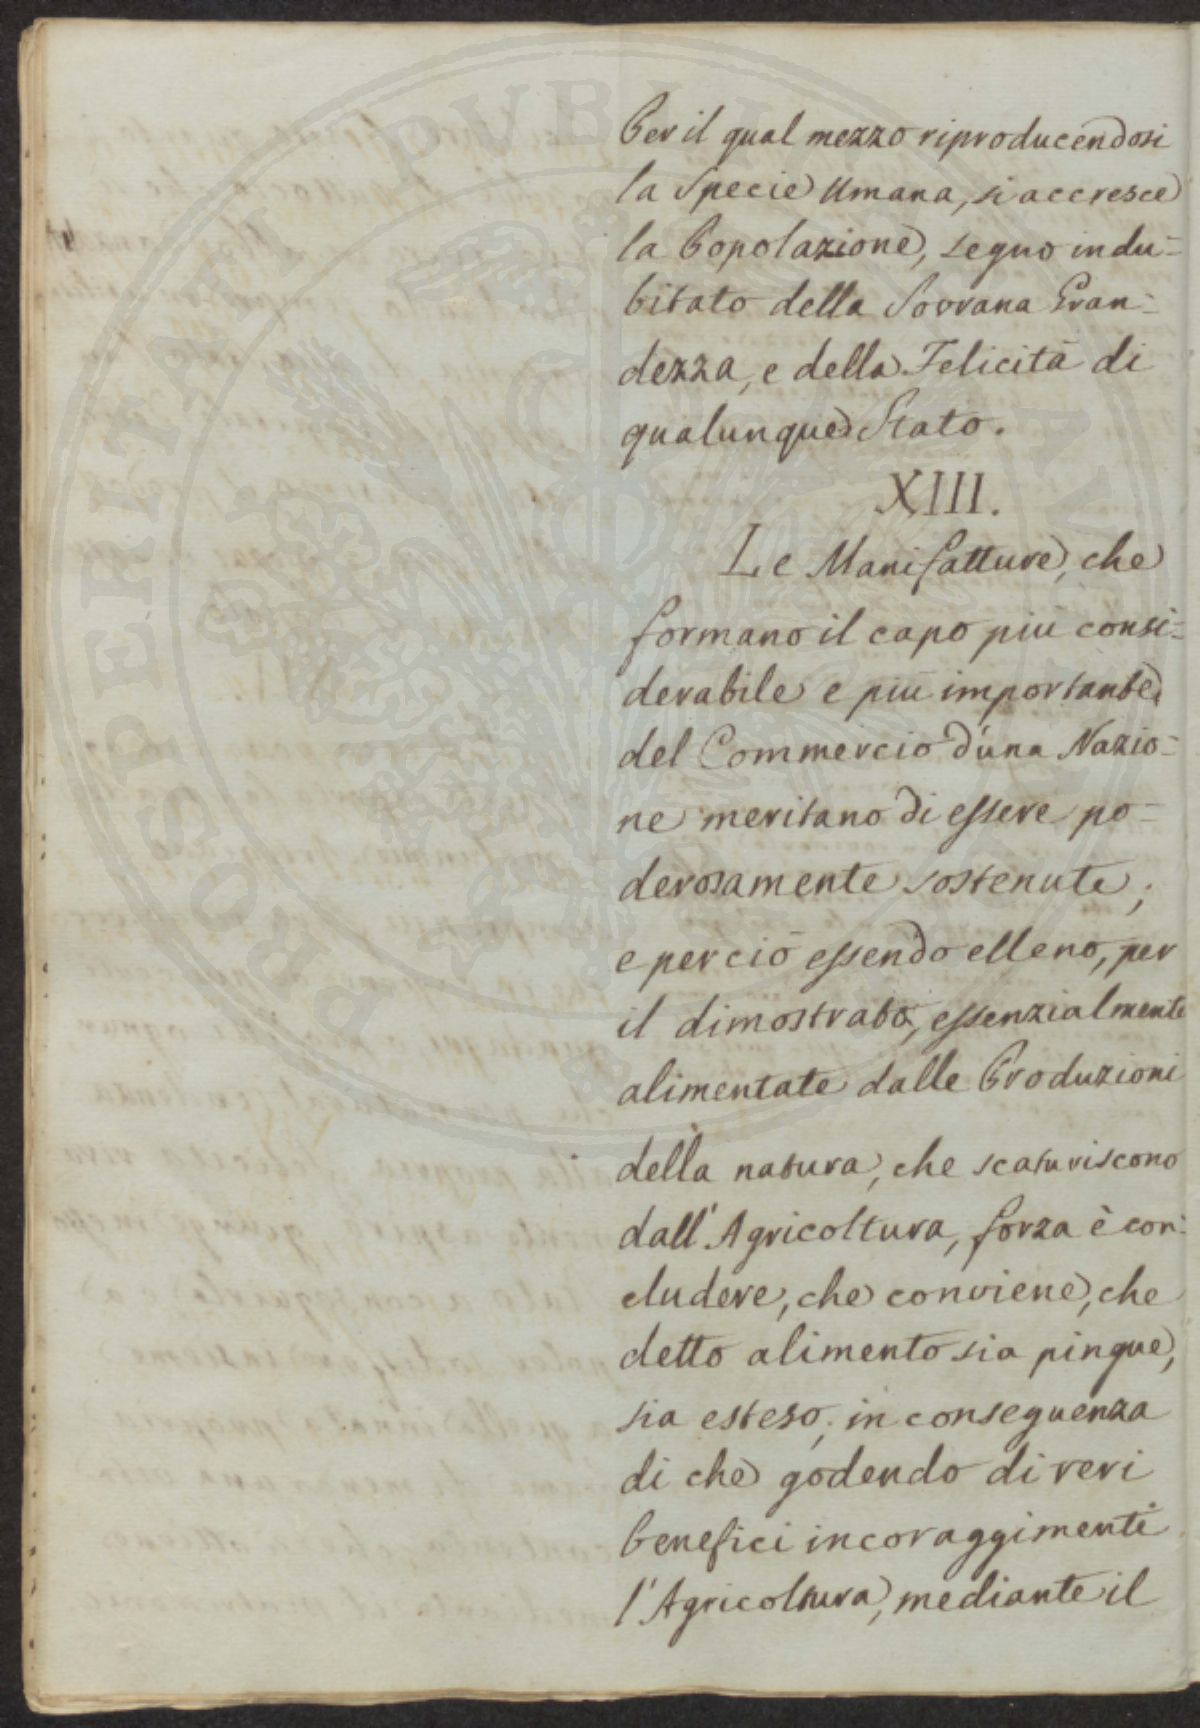 Per il qual mezzo riproducendosi
la Specie Umana, si accresce
la Popolazione, segno indu=
bitato della Sovrana Gran=
dezza, e della Felicità di
qualunque Stato.
XIII.
Le Manifatture, che
formano il capo più consi=
derabile e più importante
del Commercio d'una Nazio=
ne meritano di essere po=
derosamente sostenute;
e perciò essendo elleno, per
il dimostrato, essenzialmente
alimentate dalle Produzioni
della natura, che scaturiscono
dall'Agricoltura, forza è con=
cludere, che conviene, che
detto alimento sia pingue,
sia esteso; in conseguenza
di che godendo di veri
benefici incoraggimenti
l'Agricoltura, mediante il
PROSPERITATI PUBLICAE